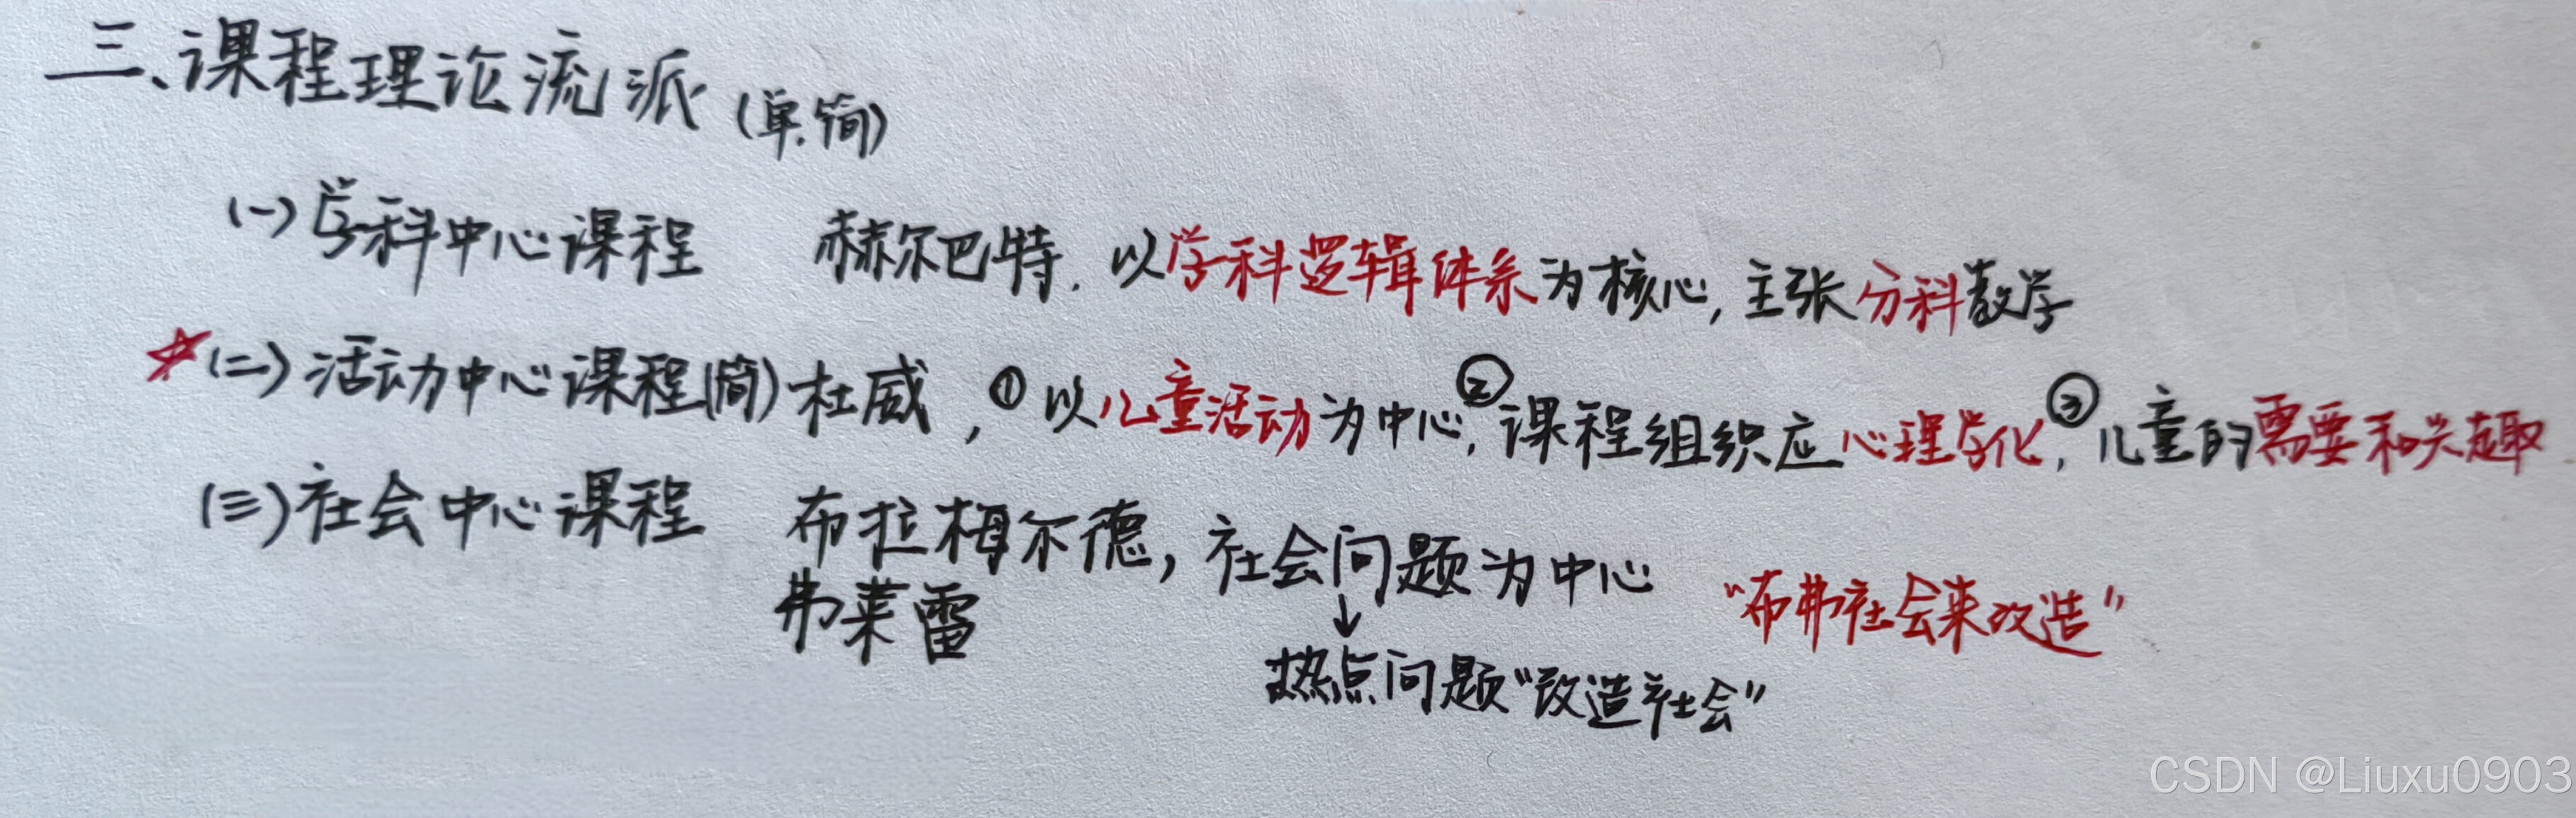 三、课程理论流派(单.简)
(一)学科中心课程 赫尔巴特. 以学科逻辑体系为核心,主张分科教学
☆(二)活动中心课程(简)杜威,①以儿童活动为中心,②课程组织应心理学化,③儿童的需要和兴趣
(三)社会中心课程 布拉梅尔德,社会问题为中心 “布弗社会来改造”
弗莱雷
↓
热点问题“改造社会”
CSDN @Liuxu0903